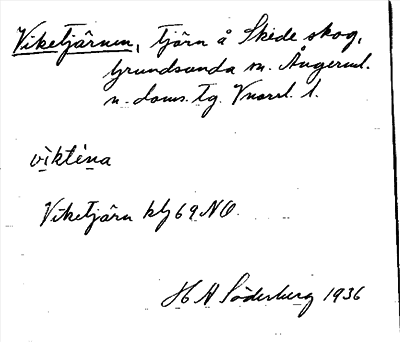 Viketjärnen, tjärn å Skéde skog,
Grundsunda sn. Ångerml.
n. doms. tg. Vnorrl. l.
vìktèna
Viketjärn kbj 69 NO.
H A Söderberg 1936